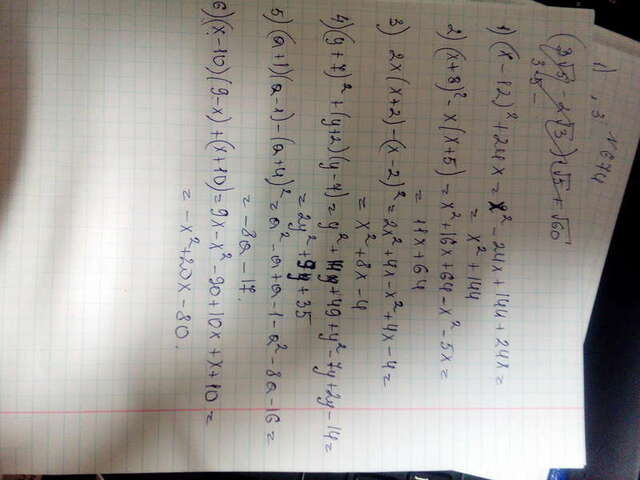 1) , 3. N 674
(3√5 - 2√3)√5 + √60
3√5 -
1) (x-12)² + 24x = x² - 24x + 144 + 24x =
= x² + 144
2) (x+8)² - x(x+5) = x² + 16x + 64 - x² - 5x =
= 11x + 64
3) 2x(x+2) - (x-2)² = 2x² + 4x - x² + 4x - 4 =
= x² + 8x - 4
4) (y+7)² + (y+2)(y-7) = y² + 14y + 49 + y² - 7y + 2y - 14 =
= 2y² + 9y + 35
5) (a+1)(a-1) - (a+4)² = a² - a + a - 1 - a² - 8a - 16 =
= -8a - 17.
6) (x-10)(9-x) + (x+10) = 9x - x² - 90 + 10x + x + 10 =
= -x² + 20x - 80.